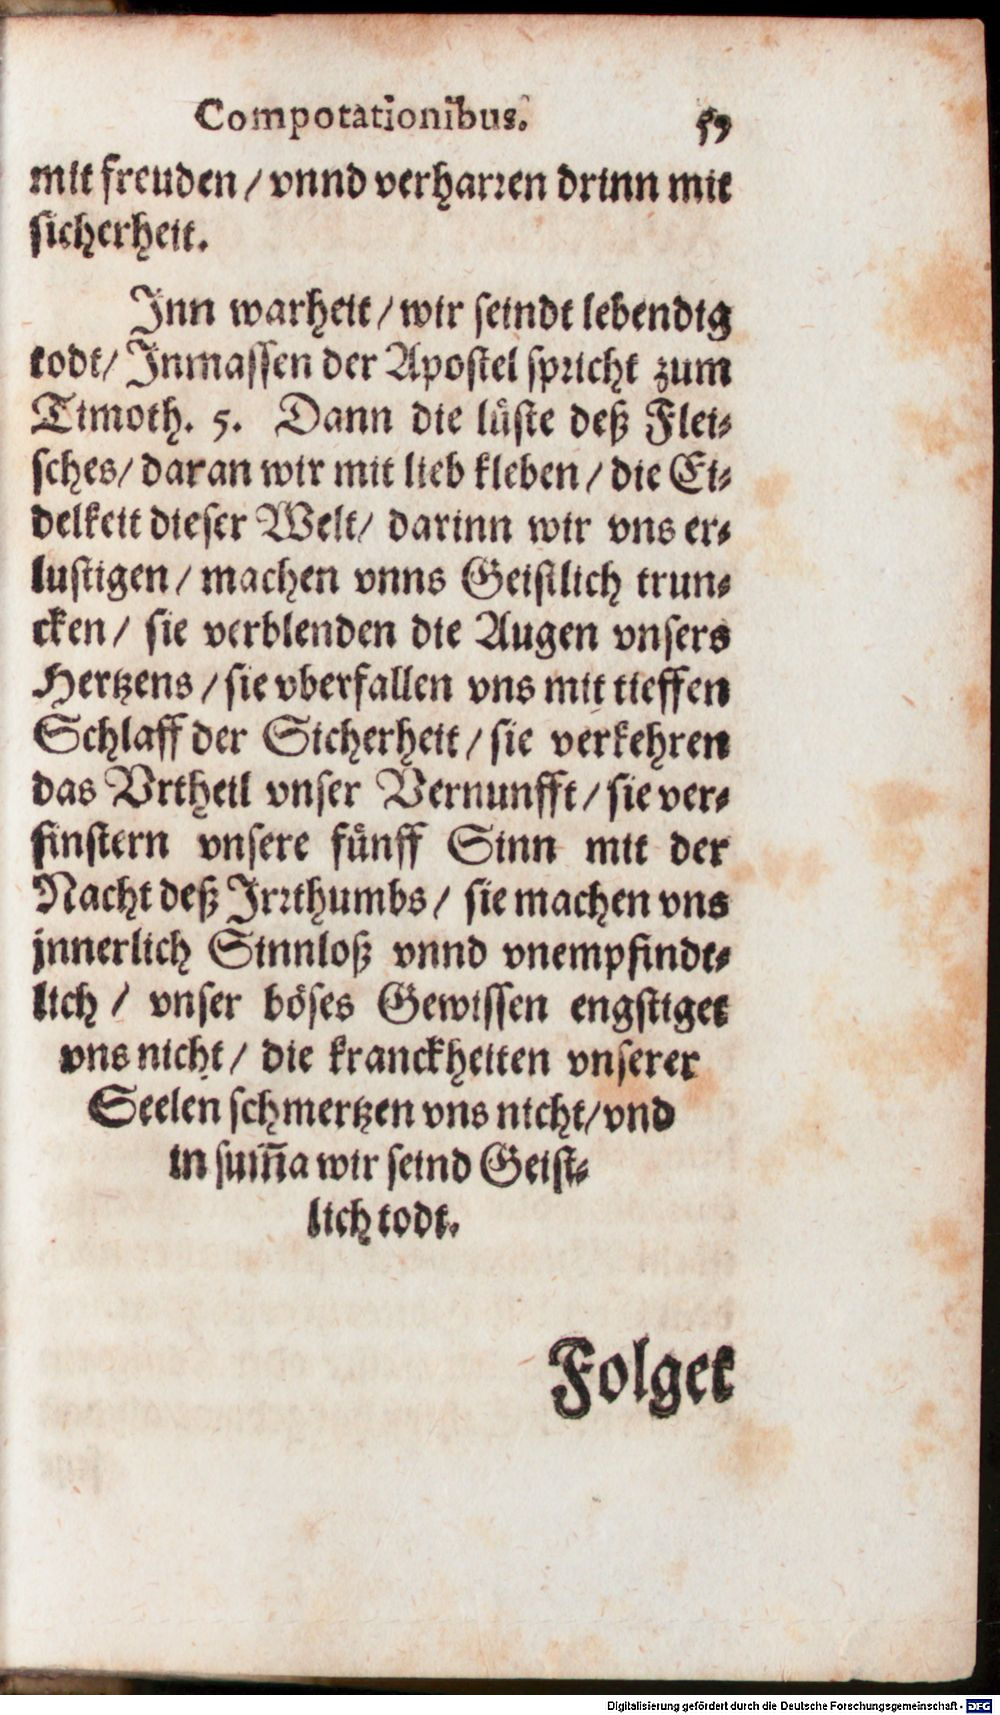 Compotationibus. 59
mit freuden / vnnd verharren drinn mit
sicherheit.
Inn warheit / wir seindt lebendig
todt / Inmassen der Apostel spricht zum
Timoth. 5. Dann die lüste deß Flei-
sches / daran wir mit lieb kleben / die Ei-
delkeit dieser Welt / darinn wir vns er-
lustigen / machen vnns Geistlich trun-
cken / sie verblenden die Augen vnsers
Hertzens / sie vberfallen vns mit tieffen
Schlaff der Sicherheit / sie verkehren
das Vrtheil vnser Vernunfft / sie ver-
finstern vnsere fünff Sinn mit der
Nacht deß Irrthumbs / sie machen vns
jnnerlich Sinnloß vnnd vnempfindt-
lich / vnser böses Gewissen engstiget
vns nicht / die kranckheiten vnserer
Seelen schmertzen vns nicht / vnd
in sum̃a wir seind Geist-
lich todt.
Folget
Digitalisierung gefördert durch die Deutsche Forschungsgemeinschaft - DFG